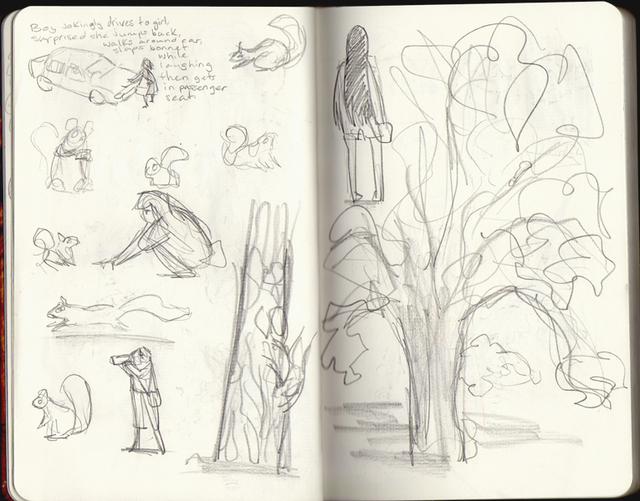 Boy jokingly drives to girl,
surprised she jumps back,
walks around car,
slaps bonnet
while
laughing
then gets
in passenger
seat.